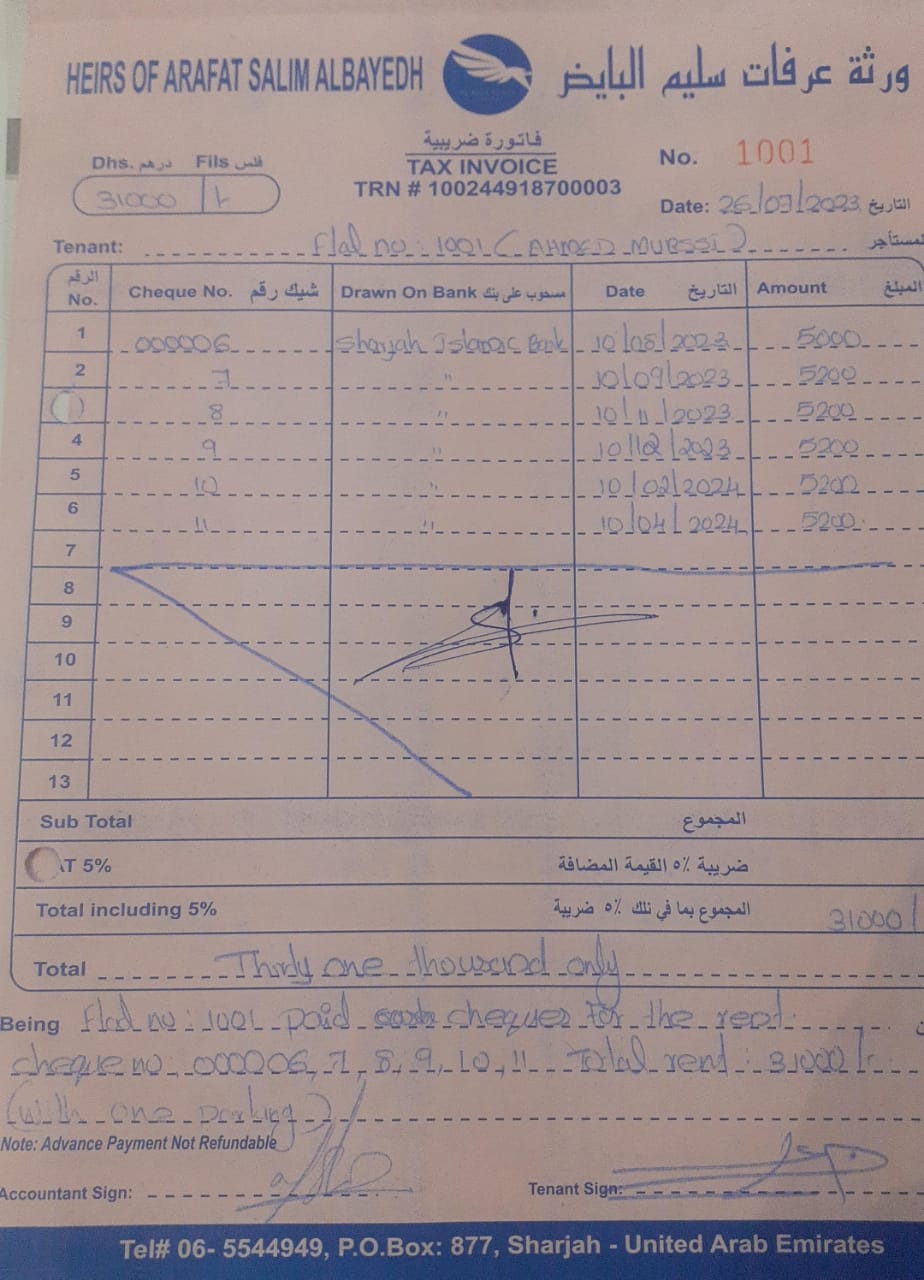 HEIRS OF ARAFAT SALIM ALBAYEDH ورثة عرفات سليم البايض
فاتورة ضريبية
TAX INVOICE
TRN # 100244918700003
Dhs. درهم Fils فلس
31000 /-
No. 1001
Date: 26/07/2023 التاريخ
Tenant: Flat no: 1001 (AHMED MURSSI) المستأجر
الرقم No. Cheque No. شيك رقم Drawn On Bank مسحوب على بنك Date التاريخ Amount المبلغ
1 000006 Sharjah Islamic Bank 10/08/2023 5000
2 7 " 10/09/2023 5200
8 " 10/11/2023 5200
4 9 " 10/12/2023 5200
5 10 " 10/02/2024 5200
6 11 " 10/04/2024 5200
7
8
9
10
11
12
13
Sub Total المجموع
AT 5% ضريبة ٥% القيمة المضافة
Total including 5% المجموع بما في ذلك ٥% ضريبة 31000/
Total Thirty one thousand only
Being Flat no: 1001 paid cheques for the rent
cheque no 000006, 7, 8, 9, 10, 11 Total rent: 31000/-
(with one parking)
Note: Advance Payment Not Refundable
Accountant Sign: Tenant Sign:
Tel# 06- 5544949, P.O.Box: 877, Sharjah - United Arab Emirates